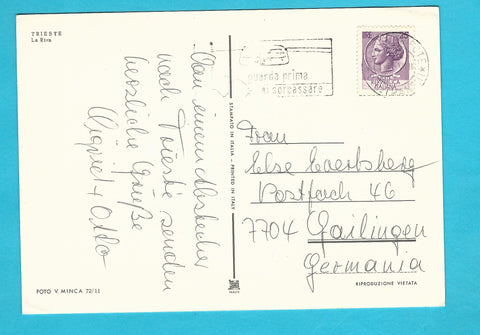 TRIESTE
La Riva
Von einem Abstecher
nach Trieste senden
herzliche Grüße
+ Otto
guarda prima
di sorpassare
STAMPATO IN ITALIA - PRINTED IN ITALY
Frau
Else
Postfach 46
7704 Gailingen
Germania
FOTO V. MINCA 72/11
RIPRODUZIONE VIETATA